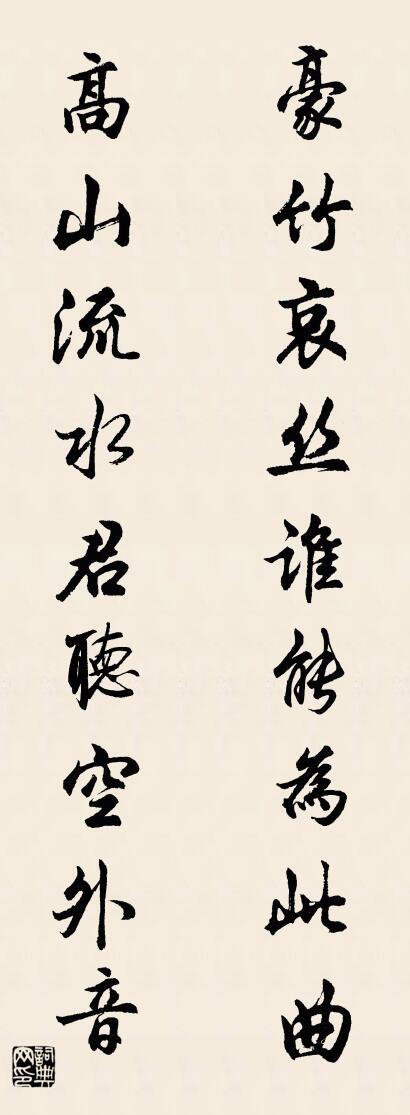 豪竹哀丝谁能為此曲
高山流水君聴空外音
詞典网印